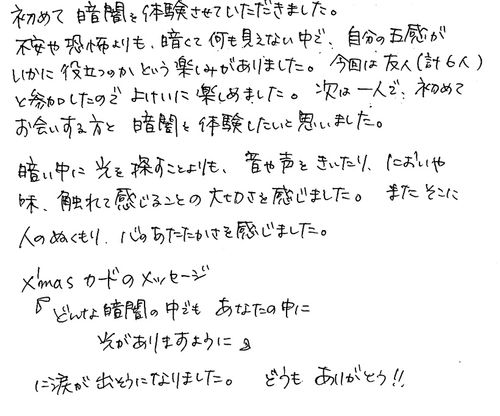 初めて 暗闇を体験させていただきました。
不安や恐怖よりも、暗くて何も見えない中で、自分の五感が
いかに役立つのかという楽しみがありました。今回は友人(計6人)
と参加したので よけいに楽しめました。次は一人で、初めて
お会いする方と 暗闇を体験したいと思いました。
暗い中に 光を探すことよりも、音や声をきいたり、においや
味、触れて感じることの大切さを感じました。またそこに
人のぬくもり、心のあたたかさを感じました。
X'mas カードのメッセージ
『どんな暗闇の中でも あなたの中に
光がありますように』
に涙が出そうになりました。 どうも ありがとう!!